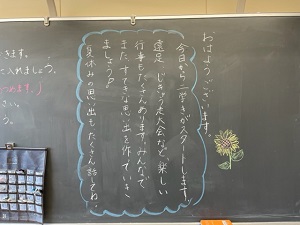 おはようございます。
今日から二学きがスタートします。
遠足、じきゅう走大会など、楽しい
行事もたくさんあります。みんなで、
また、すてきな思い出を作っていき
ましょうね。
夏休みの思い出も、たくさん話してね。
きます。
に入れましょう。
つめます。)
さい。
う。